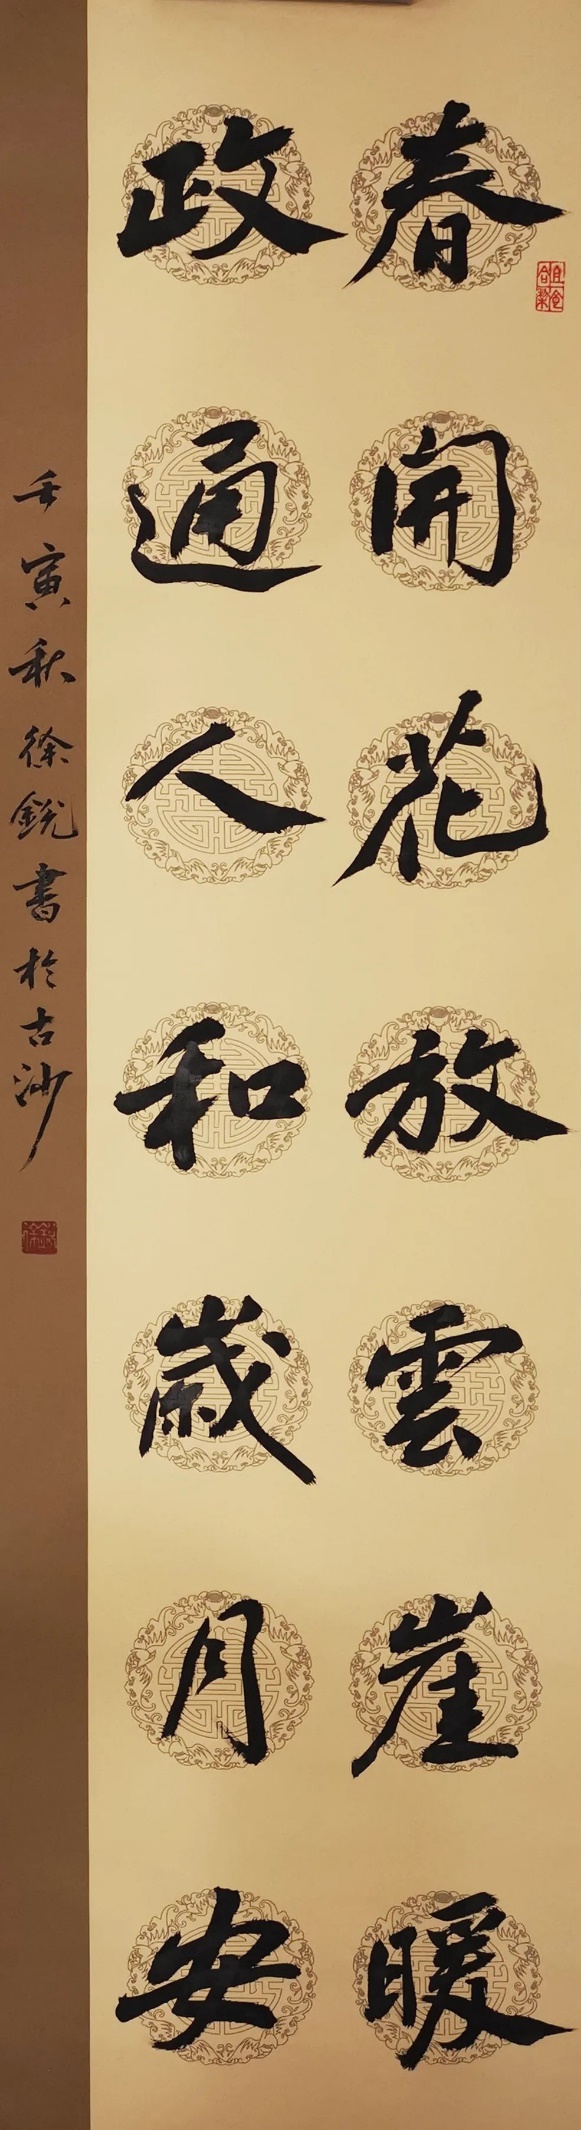 春開花放雲崖暖
政通人和歲月安
壬寅秋徐銳書於古沙